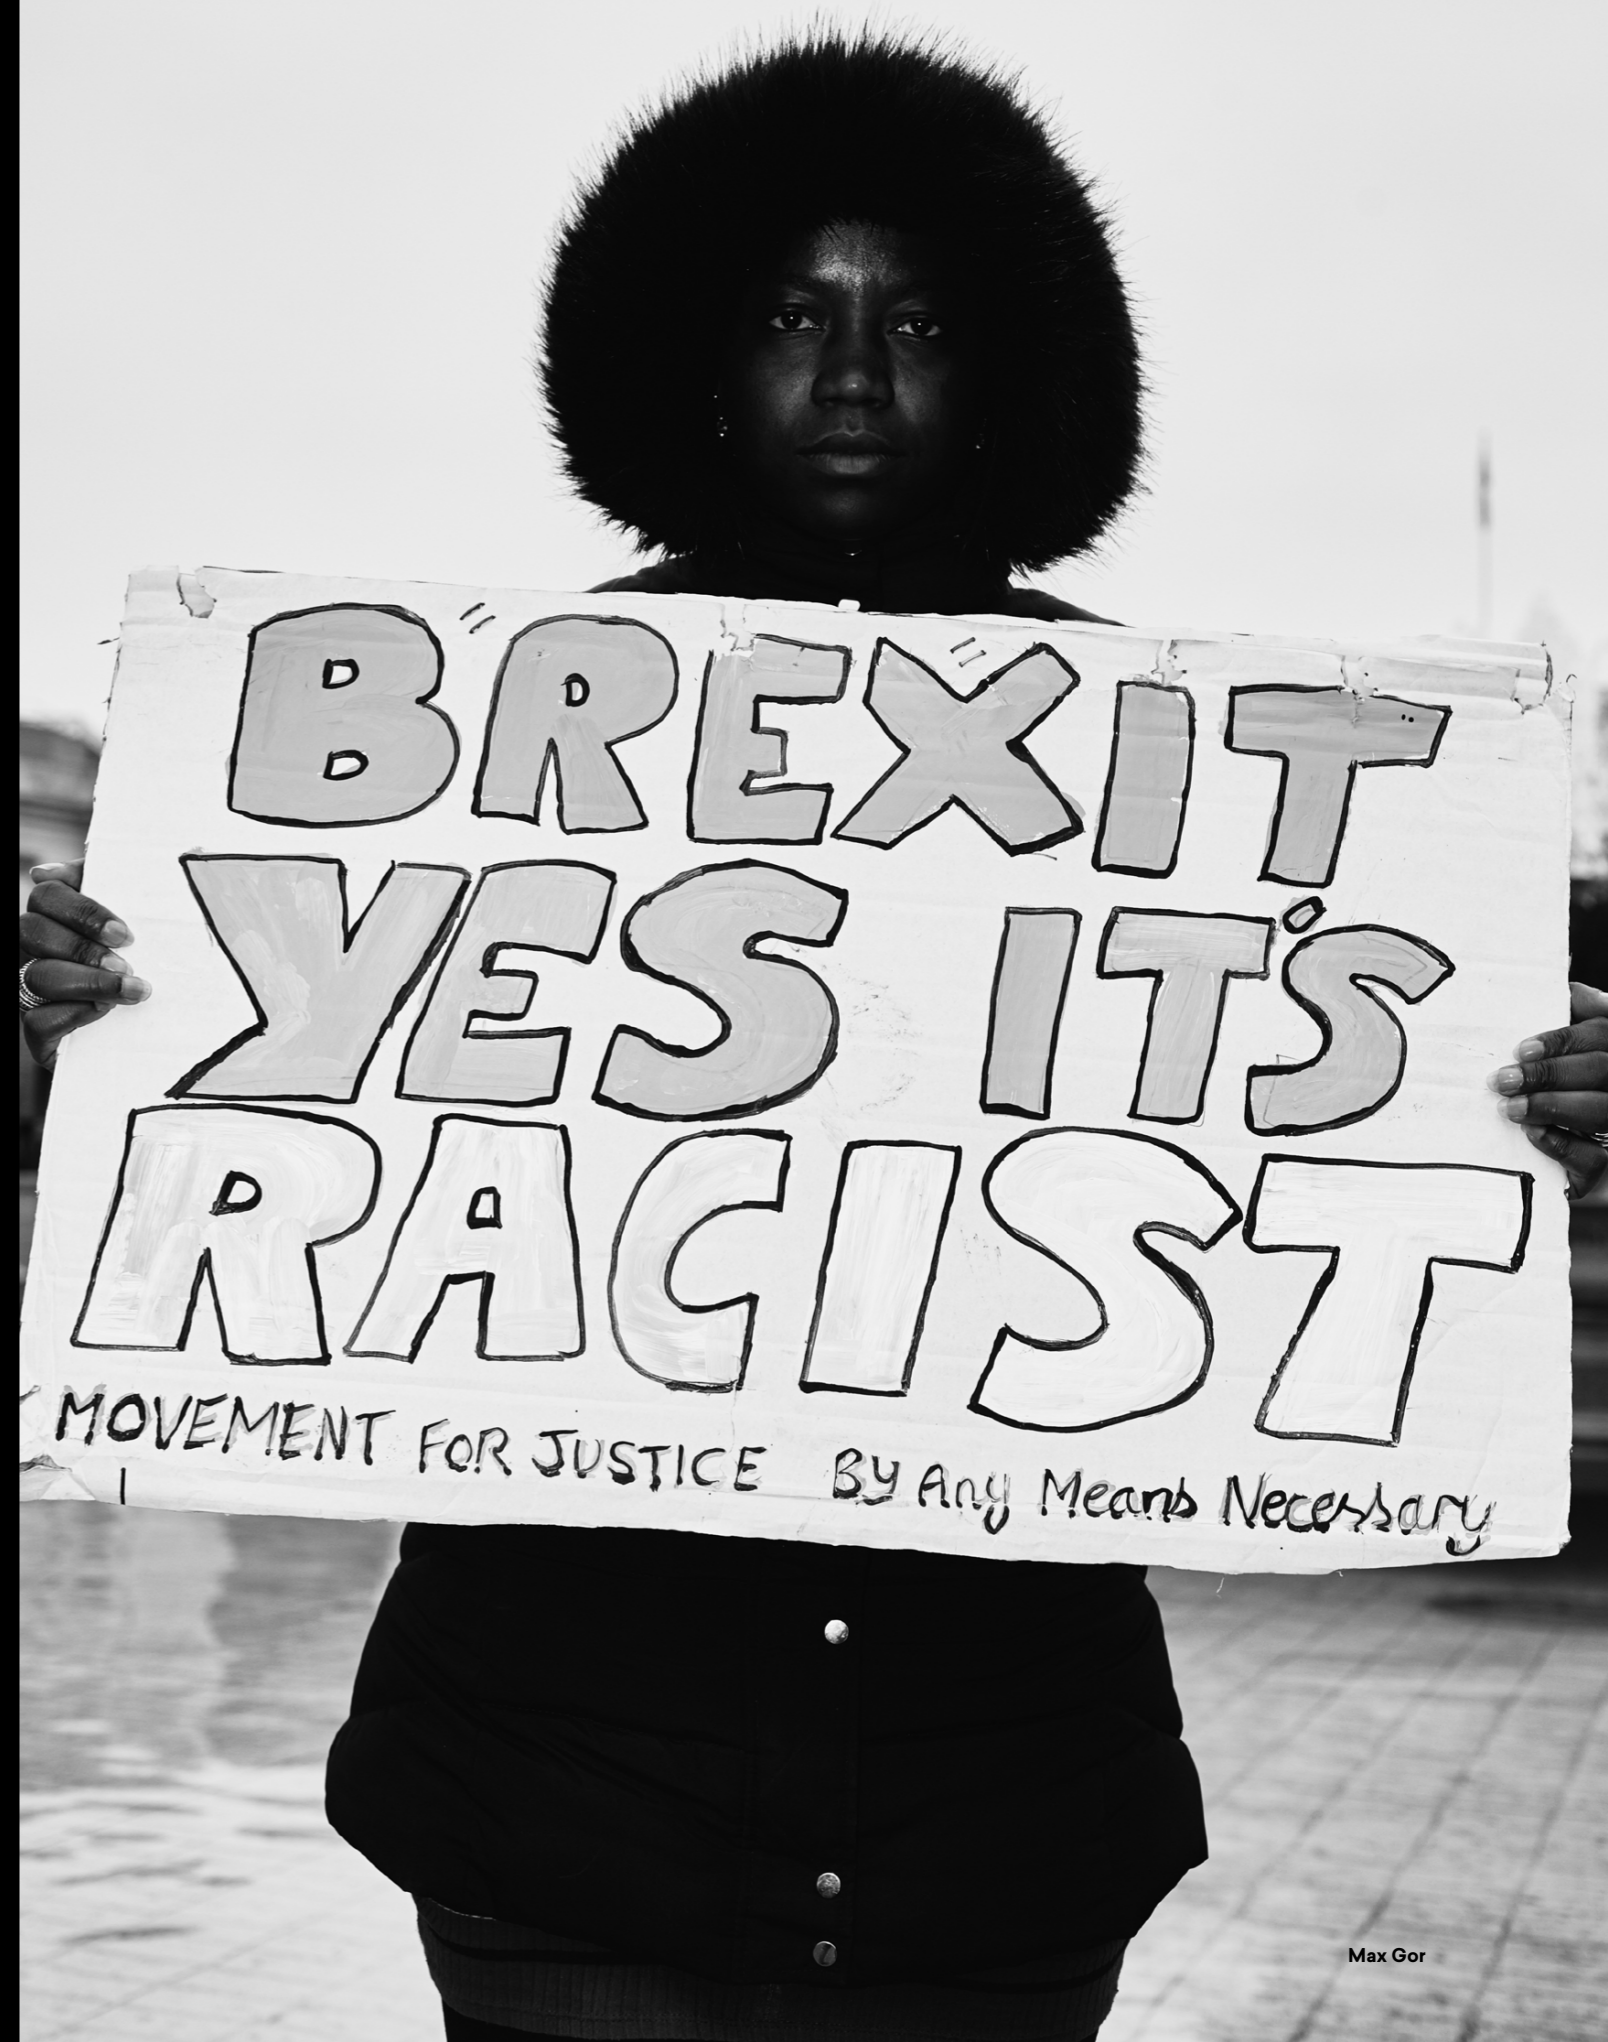 BREXIT
YES IT'S
RACIST
MOVEMENT FOR JUSTICE By Any Means Necessary
Max Gor